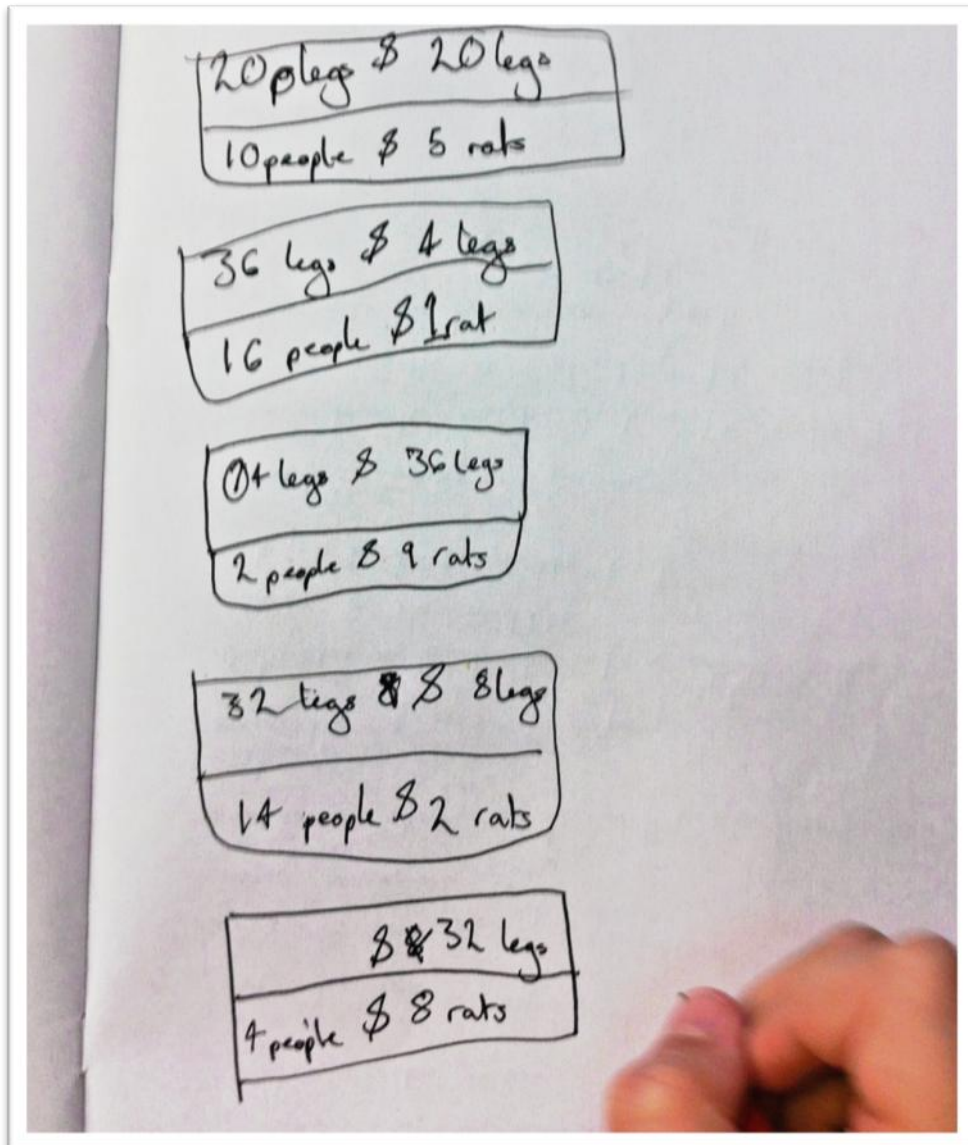 20 legs & 20 legs
10 people & 5 rats
36 legs & 4 legs
16 people & 1 rat
4 legs & 36 legs
2 people & 9 rats
32 legs & 8 legs
14 people & 2 rats
& 32 legs
4 people & 8 rats